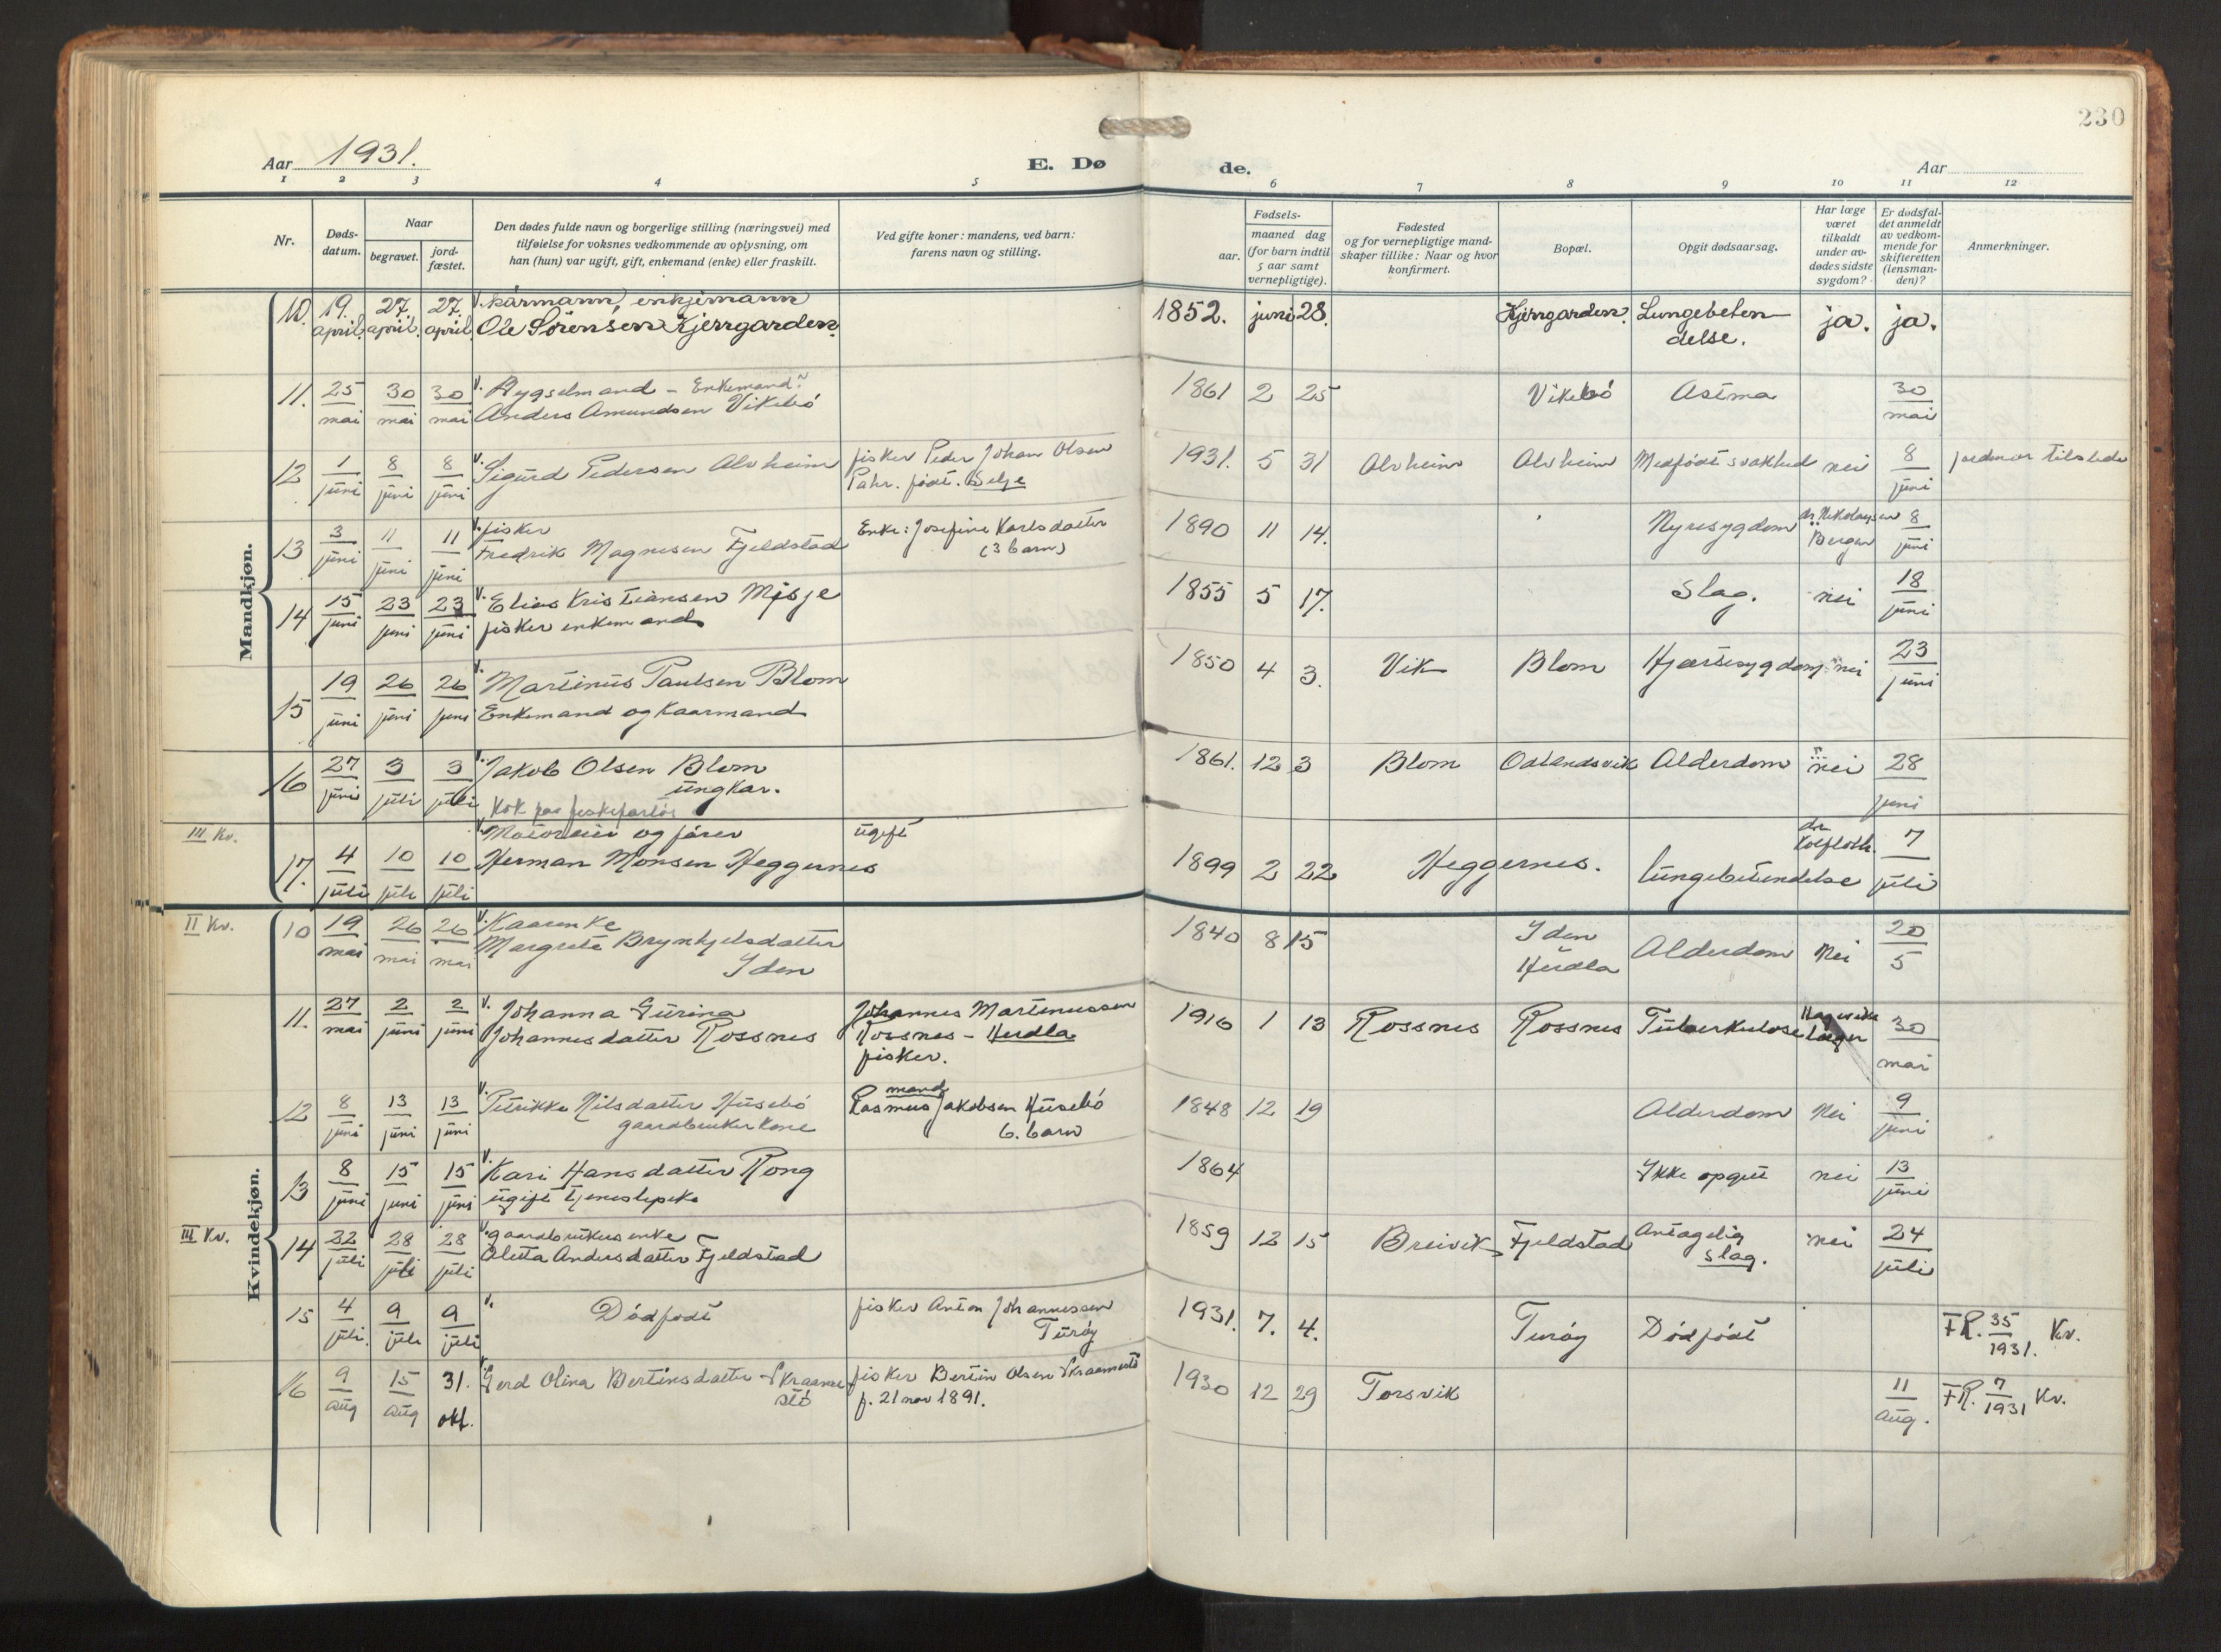 230
Aar 1931.
E. Dø
de.
Aar
1 2 3 4 5 6 7 8 9 10 11 12
Nr.
Døds-
datum.
Naar
begravet.
jord-
fæstet.
Den dødes fulde navn og borgerlige stilling (næringsvei) med
tilføielse for voksnes vedkommende av oplysning, om
han (hun) var ugift, gift, enkemand (enke) eller fraskilt.
Ved gifte koner: mandens, ved barn:
farens navn og stilling.
Fødsels-
aar.
maaned dag
(for barn indtil
5 aar samt
vernepligtige).
Fødested
og for vernepligtige mand-
skaper tillike: Naar og hvor
konfirmert.
Bopæl.
Opgit dødsaarsag.
Har læge
været
tilkaldt
under av-
dødes sidste
sygdom?
Er dødsfal-
det anmeldt
av vedkom-
mende for
skifteretten
(lensman-
den)?
Anmerkninger.
Mandkjøn.
10. 19. april. 27. april. 27. april. v. kårmann, enkjemann
Ole Sørensen Kjerrgarden. 1852. juni 28. Kjerrgarden. Lungebeten-
delse. ja. ja.
11. 25 mai 30 mai 30 mai v. - Enkemand
Anders Amundsen Vikebó 1861 2 25 Vikebó Astma 30 mai
12 1 juni 8 juni 8 juni v. Sigurd Pedersen Alvheim fisker Peder Johan Olsen
født. Selje 1931. 5 31 Alvheim Alvheim Medfødt svakhed nei 8 juni jordmor tilstede
13 3 juni 11 juni 11 juni v. fisker
Fredrik Magnesen Fjeldstad Enke: Josefine Karlsdatter
(3 barn) 1890 11 14. Nyresygdom dr. Nikolaysen
Bergen 8 juni
14 15 juni 23 juni 23 juni v. Elias Kristiansen Misje
fisker enkemand 1855 5 17. Slag. nei 18 juni
15 19 juni 26 juni 26 juni v. Martinus Paulsen Blom
Enkemand og Kaarmand 1850 4 3. Vik Blom Hjertesygdom nei 23 juni
16 27 juni 3 juli 3 juli v. Jakob Olsen Blom
ungkar.
Kok paa 1861. 12 3 Blom Odlandsvik Alderdom nei 28 juni
III Kv.
17. 4 juli 10 juli 10 juli v. og fører
Herman Monsen Heggernes ugift 1899 2 22 Heggernes. lungebetendelse dr. 7 juli
Kvindekjøn.
II Kv.
10 19 mai 26 mai 26 mai v. Kaarenke
Margrete Brynhjelsdatter
Iden 1840 8 15 Iden
Herdla Alderdom Nei 20 5
11. 27 mai 2 juni 2 juni v. Johanna Gurina
Johannesdatter Rossnes Johannes Martinussen
Rossnes - Herdla
fisker. 1916 1 13 Rossnes Rossnes Tuberkulose 30 mai
12 8 juni 13 juni 13 juni v. Petrikke Nilsdatter Husebó
gaardbrukerkone mand
Rasmus Jakobsen Husebó
6. barn 1848 12 19 Alderdom Nei 9 juni
13 8 juni 15 juni 15 juni v. Kari Hansdatter Rong
ugift 1864 Ikke opgit nei 13 juni
III Kv.
14 22 juli 28 juli 28 juli v. gaardbrukerenke
Oletta Andersdatter Fjeldstad 1859 12 15 Breivik Fjeldstad Antagelig
slag. nei 24 juli
15 4 juli. 9 juli 9 juli v. Dódfódt fisker Anton Johannessen
Turóy 1931. 7. 4. Turóy Dódfódt FR. 35 1931. Kv.
16 9 aug 15 aug 31. okt. v. Gerd Olina Bertinsdatter Skraame
stó fisker Bertin Olsen Skraamestó
f. 21 nov 1891. 1930 12 29 Torsvik 11 aug. FR. 7 1931 Kv.